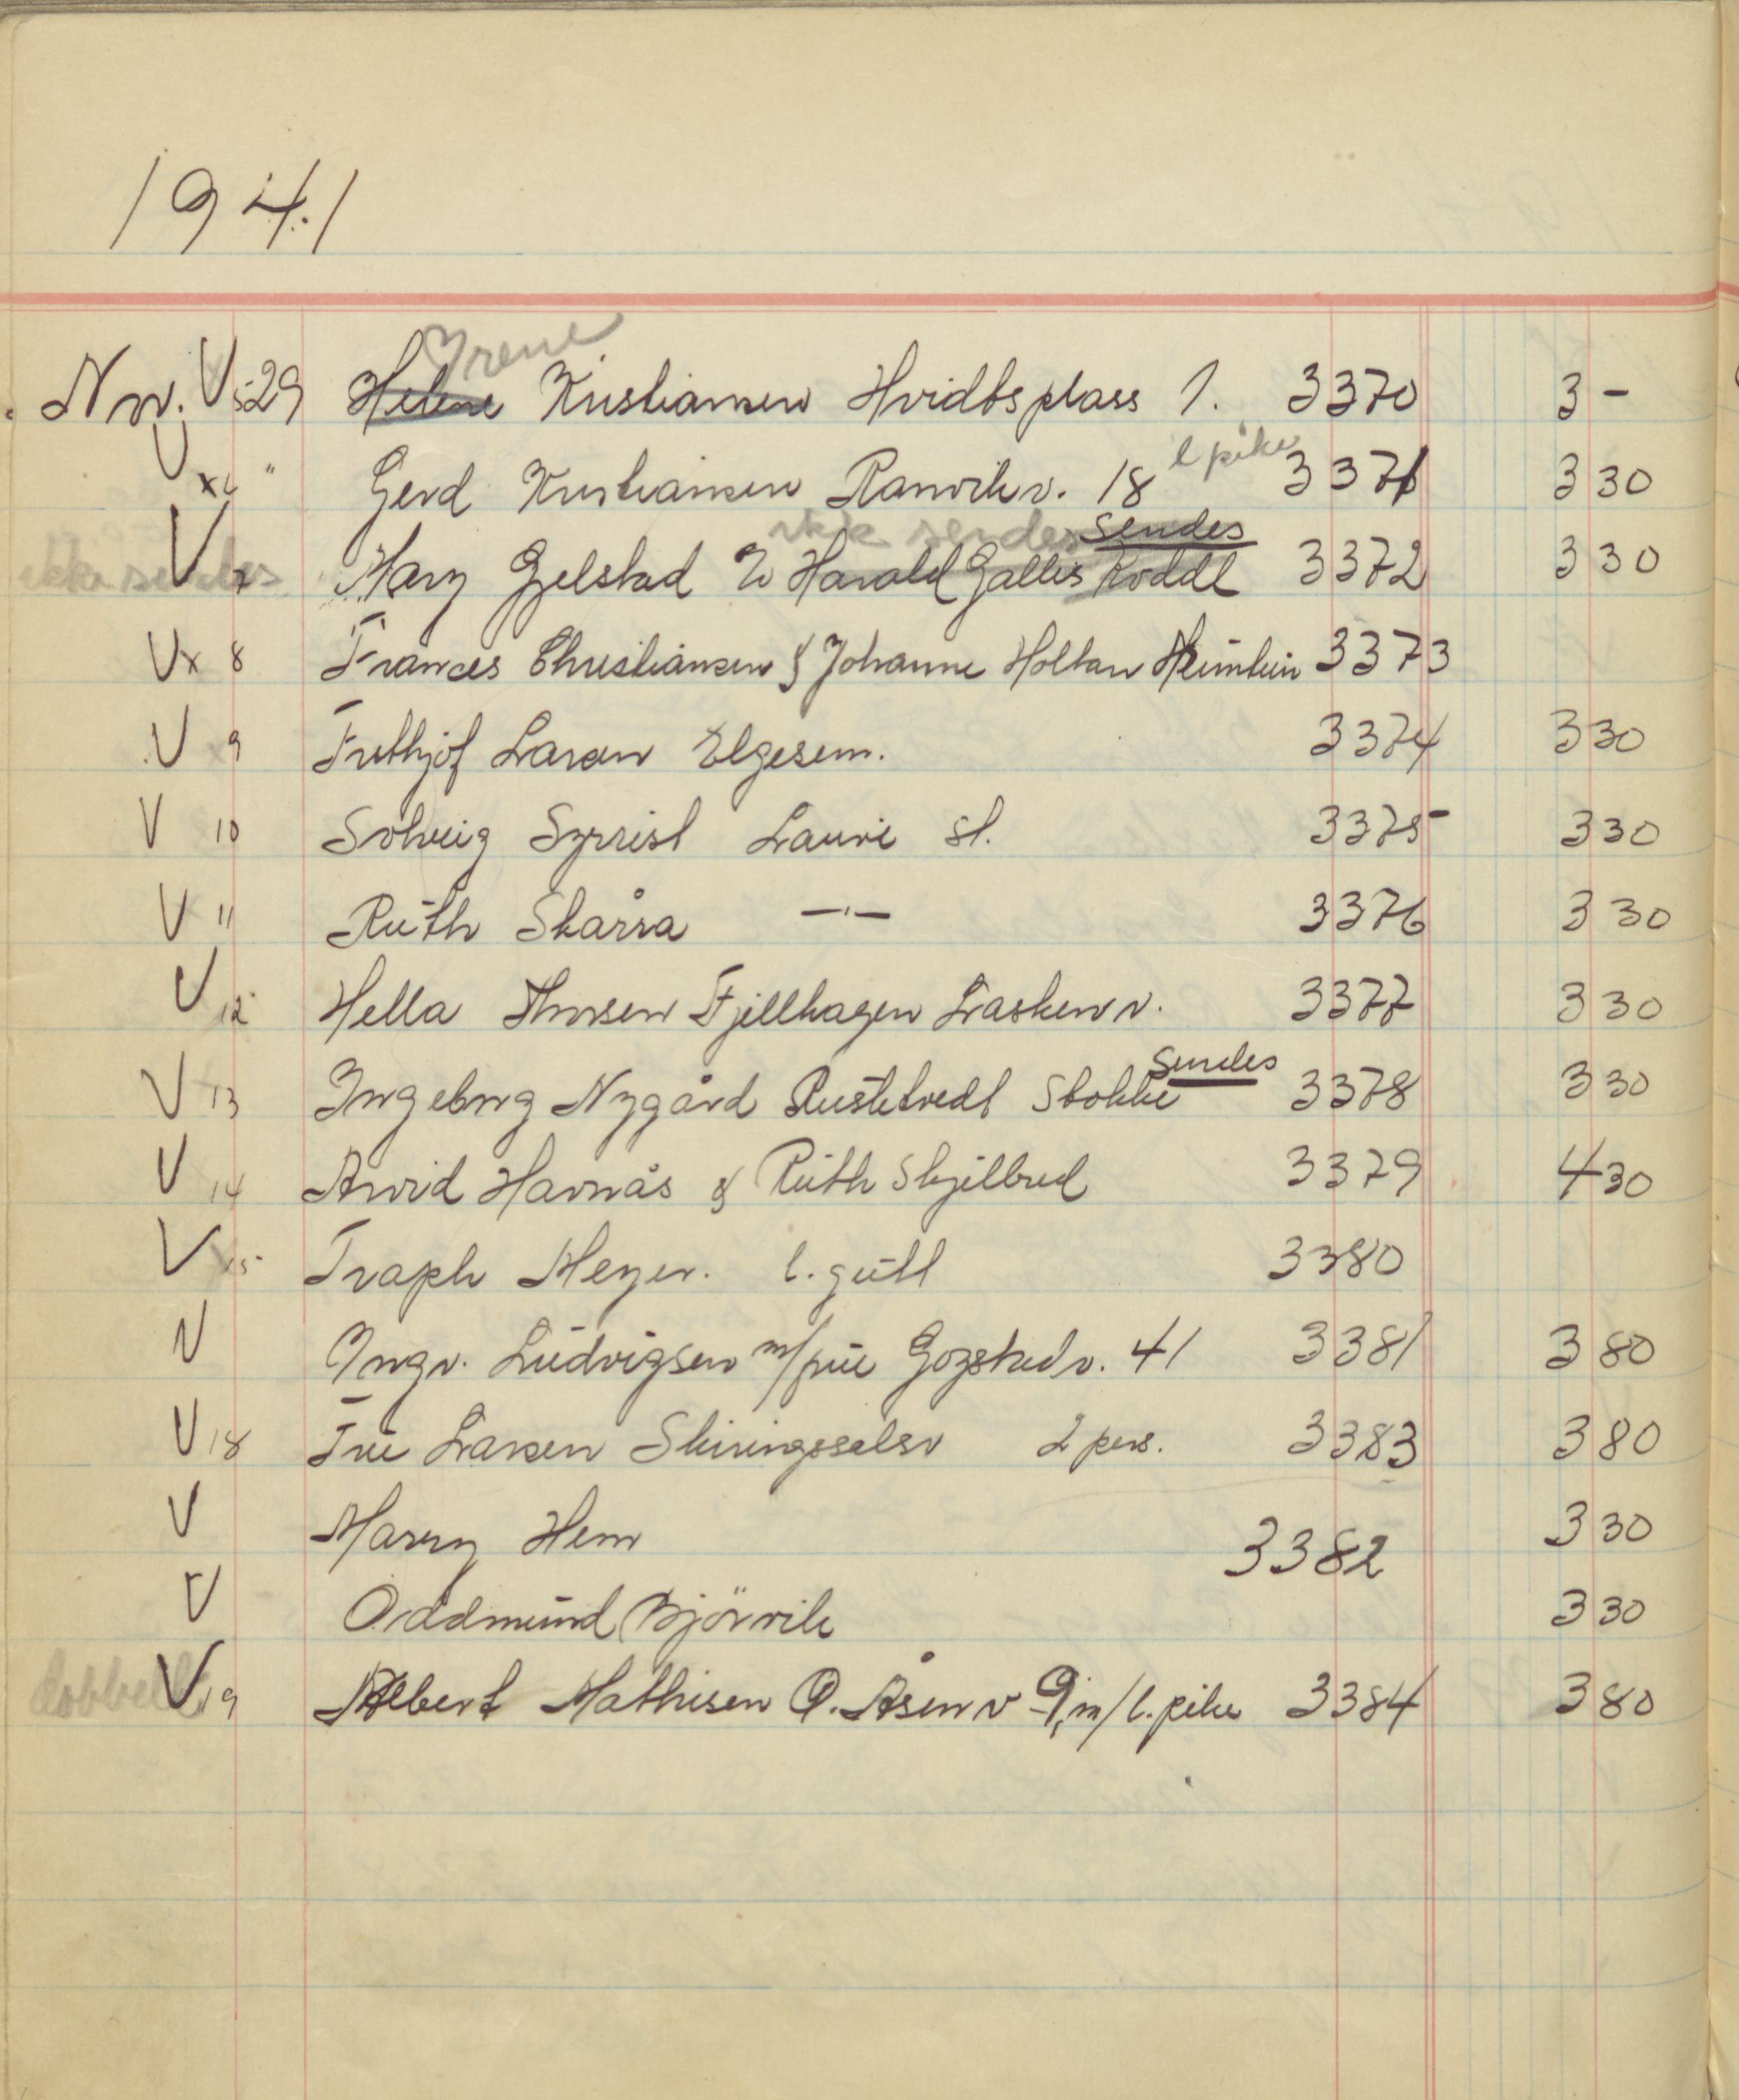 1941
Nov. V 5 29 Helene Yrene Kristiansen Hvidtsplass 1. 3370 3 -
V x6 " Gerd Kristiansen Ranvikv. 18 l pike 3371 3 30
ikke sendes V 7 Mary Gjelstad ikke sendes sendes Harald Galtes Roddl 3372 3 30
V x 8 Frances Christiansen & Johanne Holtan Heimtun 3373
V 9 Frithjof Larsen Elgesem. 3374 3 30
V 10 Solveig Syrrist Lauvé st. 3375 3 30
V 11 Ruth Skarra —"— 3376 3 30
V 12 Hella Thorsen Fjellhagen Laskenv. 3377 3 30
V 13 Ingeborg Nygård Rustetvedt Stokke sendes 3378 3 30
V 14 Arvid Havnås & Ruth Skjelbred 3379 4 30
V 15 Traph Meyer. l. gutt 3380
V Yngv. Ludvigsen m/frue Gogstadv. 41 3381 3 80
V 18 Fru Larsen Skiringssalsv 2 pers. 3383 3 80
V Marry Hem 3382 3 30
V Oddmund Bjørvik 3 30
dobbelt V 19 Albert Mathisen Ø. Åsenv 9, m/l. pike 3384 3 80